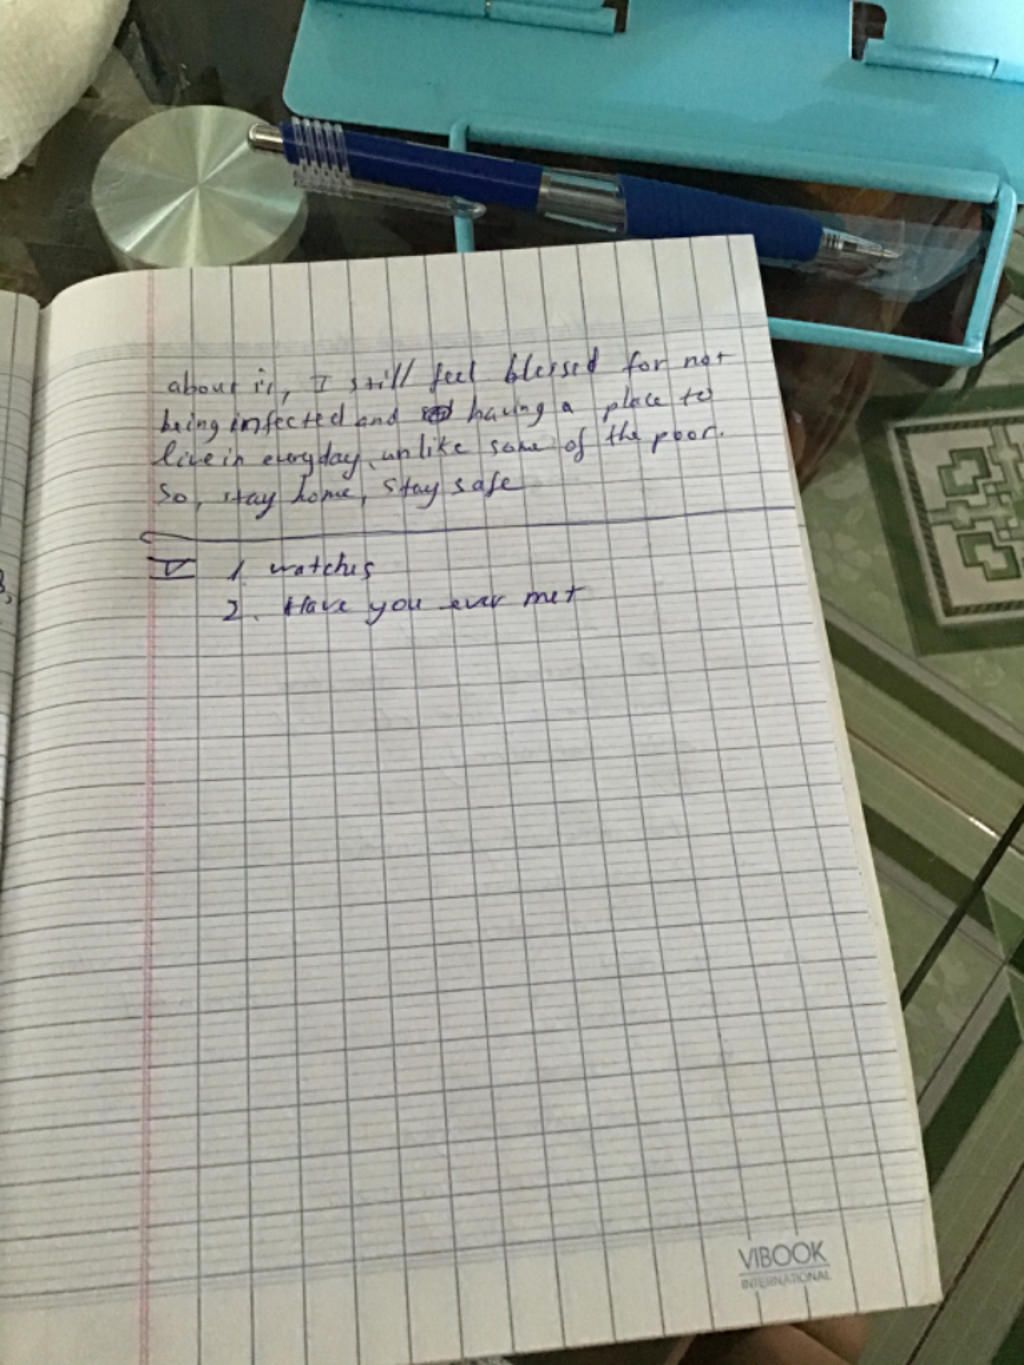 about it, I still feel blessed for not
being infected and having a place to
live in everyday, unlike some of the poor.
So, stay home, stay safe
V 1. watches
2. Have you ever met
VIBOOK
INTERNATIONAL